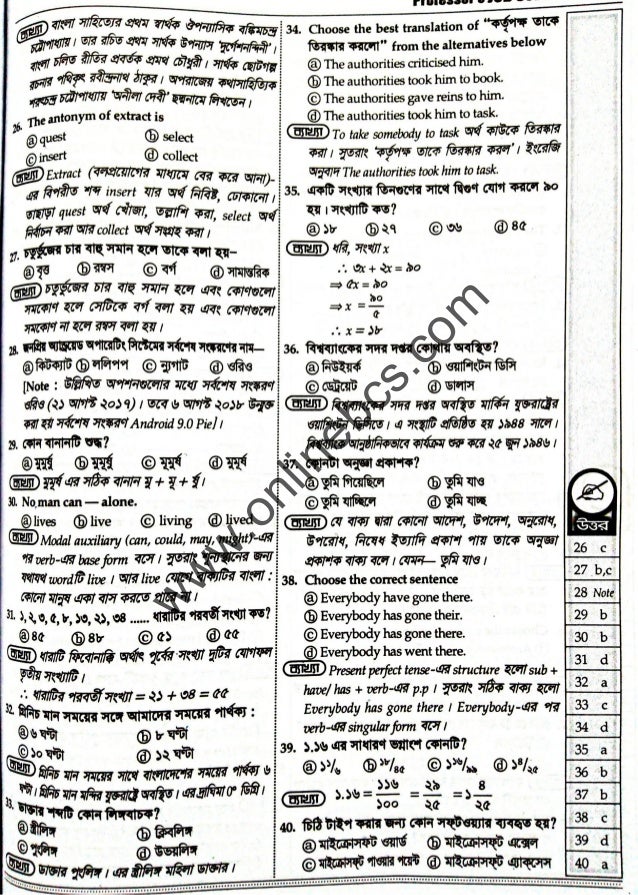 ব্যাখ্যা বাংলা সাহিত্যের প্রথম সার্থক ঔপন্যাসিক বঙ্কিমচন্দ্র
চট্টোপাধ্যায়। তার রচিত প্রথম সার্থক উপন্যাস 'দুর্গেশনন্দিনী'।
বাংলা চলিত রীতির প্রবর্তক প্রমথ চৌধুরী। সার্থক ছোটগল্প
রচনার পথিকৃৎ রবীন্দ্রনাথ ঠাকুর। অপরাজেয় কথাসাহিত্যিক
শরৎচন্দ্র চট্টোপাধ্যায় 'অনীলা দেবী' ছদ্মনামে লিখতেন।
26. The antonym of extract is
ⓐ quest ⓑ select
ⓒ insert ⓓ collect
ব্যাখ্যা Extract (বলপ্রয়োগের মাধ্যমে বের করে আনা)-
এর বিপরীত শব্দ insert যার অর্থ নিবিষ্ট, ঢোকানো।
তাছাড়া quest অর্থ খোঁজা, তল্লাশি করা, select অর্থ
নির্বাচন করা আর collect অর্থ সংগ্রহ করা।
27. চতুর্ভুজের চার বাহু সমান হলে তাকে বলা হয়–
ⓐ বৃত্ত ⓑ রম্বস ⓒ বর্গ ⓓ সামান্তরিক
ব্যাখ্যা চতুর্ভুজের চার বাহু সমান হলে এবং কোণগুলো
সমকোণ হলে সেটিকে বর্গ বলা হয় এবং কোণগুলো
সমকোণ না হলে রম্বস বলা হয়।
28. জনপ্রিয় অ্যান্ড্রয়েড অপারেটিং সিস্টেমের সর্বশেষ সংস্করণের নাম—
ⓐ কিটক্যাট ⓑ ললিপপ ⓒ ন্যুগাট ⓓ ওরিও
[Note : উল্লিখিত অপশনগুলোর মধ্যে সর্বশেষ সংস্করণ
ওরিও (২১ আগস্ট ২০১৭)। তবে ৬ আগস্ট ২০১৮ উন্মুক্ত
করা হয় সর্বশেষ সংস্করণ Android 9.0 Pie]।
29. কোন বানানটি শুদ্ধ?
30. No man can — alone.
ⓐ lives ⓑ live ⓒ living ⓓ lived
ব্যাখ্যা Modal auxiliary (can, could, may, might)-এর
পর verb-এর base form বসে। সুতরাং শূন্যস্থানের জন্য
যথাযথ wordটি live। আর live যোগে বাক্যটির বাংলা :
কোনো মানুষ একা বাস করতে পারে না।
31. ১, ২, ৩, ৫, ৮, ১৩, ২১, ৩৪ ...... ধারাটির পরবর্তী সংখ্যা কত?
ⓐ ৪৫ ⓑ ৪৮ ⓒ ৫১ ⓓ ৫৫
ব্যাখ্যা ধারাটি ফিবোনাক্কি অর্থাৎ পূর্বের সংখ্যা দুটির যোগফল
তৃতীয় সংখ্যাটি।
∴ ধারাটির পরবর্তী সংখ্যা = ২১ + ৩৪ = ৫৫
32. গ্রিনিচ মান সময়ের সঙ্গে আমাদের সময়ের পার্থক্য :
ⓐ ৬ ঘণ্টা ⓑ ৮ ঘণ্টা
ⓒ ১০ ঘণ্টা ⓓ ১২ ঘণ্টা
ব্যাখ্যা গ্রিনিচ মান সময়ের সাথে বাংলাদেশের সময়ের পার্থক্য ৬
ঘণ্টা। গ্রিনিচ মান মন্দির যুক্তরাষ্ট্রে অবস্থিত। এর দ্রাঘিমা 0° ডিগ্রি।
33. ডাক্তার শব্দটি কোন লিঙ্গবাচক?
ⓐ স্ত্রীলিঙ্গ ⓑ ক্লিবলিঙ্গ
ⓒ পুংলিঙ্গ ⓓ উভয়লিঙ্গ
ব্যাখ্যা ডাক্তার পুংলিঙ্গ। এর স্ত্রীলিঙ্গ মহিলা ডাক্তার।
34. Choose the best translation of "কর্তৃপক্ষ তাকে
তিরস্কার করলো" from the alternatives below
ⓐ The authorities criticised him.
ⓑ The authorities took him to book.
ⓒ The authorities gave reins to him.
ⓓ The authorities took him to task.
ব্যাখ্যা To take somebody to task অর্থ কাউকে তিরস্কার
করা। সুতরাং 'কর্তৃপক্ষ তাকে তিরস্কার করল'। ইংরেজি
অনুবাদ The authorities took him to task.
35. একটি সংখ্যার তিনগুণের সাথে দ্বিগুণ যোগ করলে ৯০
হয়। সংখ্যাটি কত?
ⓐ ১৮ ⓑ ২৭ ⓒ ৩৬ ⓓ ৪৫
ব্যাখ্যা ধরি, সংখ্যা x
∴ ৩x + ২x = ৯০
⇒ ৫x = ৯০
⇒ x = ৯০/৫
∴ x = ১৮
36. বিশ্বব্যাংকের সদর দপ্তর কোথায় অবস্থিত?
ⓐ নিউইয়র্ক ⓑ ওয়াশিংটন ডিসি
ⓒ ডেট্রয়েট ⓓ ডালাস
ব্যাখ্যা বিশ্বব্যাংকের সদর দপ্তর অবস্থিত মার্কিন যুক্তরাষ্ট্রের
ওয়াশিংটন ডিসিতে। এ সংস্থাটি প্রতিষ্ঠিত হয় ১৯৪৪ সালে।
বিশ্বব্যাংক আনুষ্ঠানিকভাবে কার্যক্রম শুরু করে ২৫ জুন ১৯৪৬।
37. কোনটা অনুজ্ঞা প্রকাশক?
ⓐ তুমি গিয়েছিলে ⓑ তুমি যাও
ⓒ তুমি যাচ্ছিলে ⓓ তুমি যাচ্ছ
ব্যাখ্যা যে বাক্য দ্বারা কোনো আদেশ, উপদেশ, অনুরোধ,
উপরোধ, নিষেধ ইত্যাদি প্রকাশ পায় তাকে অনুজ্ঞা
প্রকাশক বাক্য বলে। যেমন— তুমি যাও।
38. Choose the correct sentence
ⓐ Everybody have gone there.
ⓑ Everybody has gone their.
ⓒ Everybody has gone there.
ⓓ Everybody has went there.
ব্যাখ্যা Present perfect tense-এর structure হলো sub +
have/ has + verb-এর p.p। সুতরাং সঠিক বাক্য হলো
Everybody has gone there। Everybody-এর পর
verb-এর singular form বসে।
39. ১.১৬ এর সাধারণ ভগ্নাংশ কোনটি?
ব্যাখ্যা ১.১৬ = ১১৬/১০০ = ২৯/২৫ = ১ ৪/২৫
40. চিঠি টাইপ করার জন্য কোন সফ্টওয়্যার ব্যবহৃত হয়?
ⓐ মাইক্রোসফ্ট ওয়ার্ড ⓑ মাইক্রোসফ্ট এক্সেল
ⓒ মাইক্রোসফ্ট পাওয়ার পয়েন্ট ⓓ মাইক্রোসফ্ট এ্যাকসেস
উত্তর
26 c
27 b,c
28 Note
29 b
30 b
31 d
32 a
33 c
34 d
35 a
36 b
37 b
38 c
39 d
40 a
www.onlinebcs.com